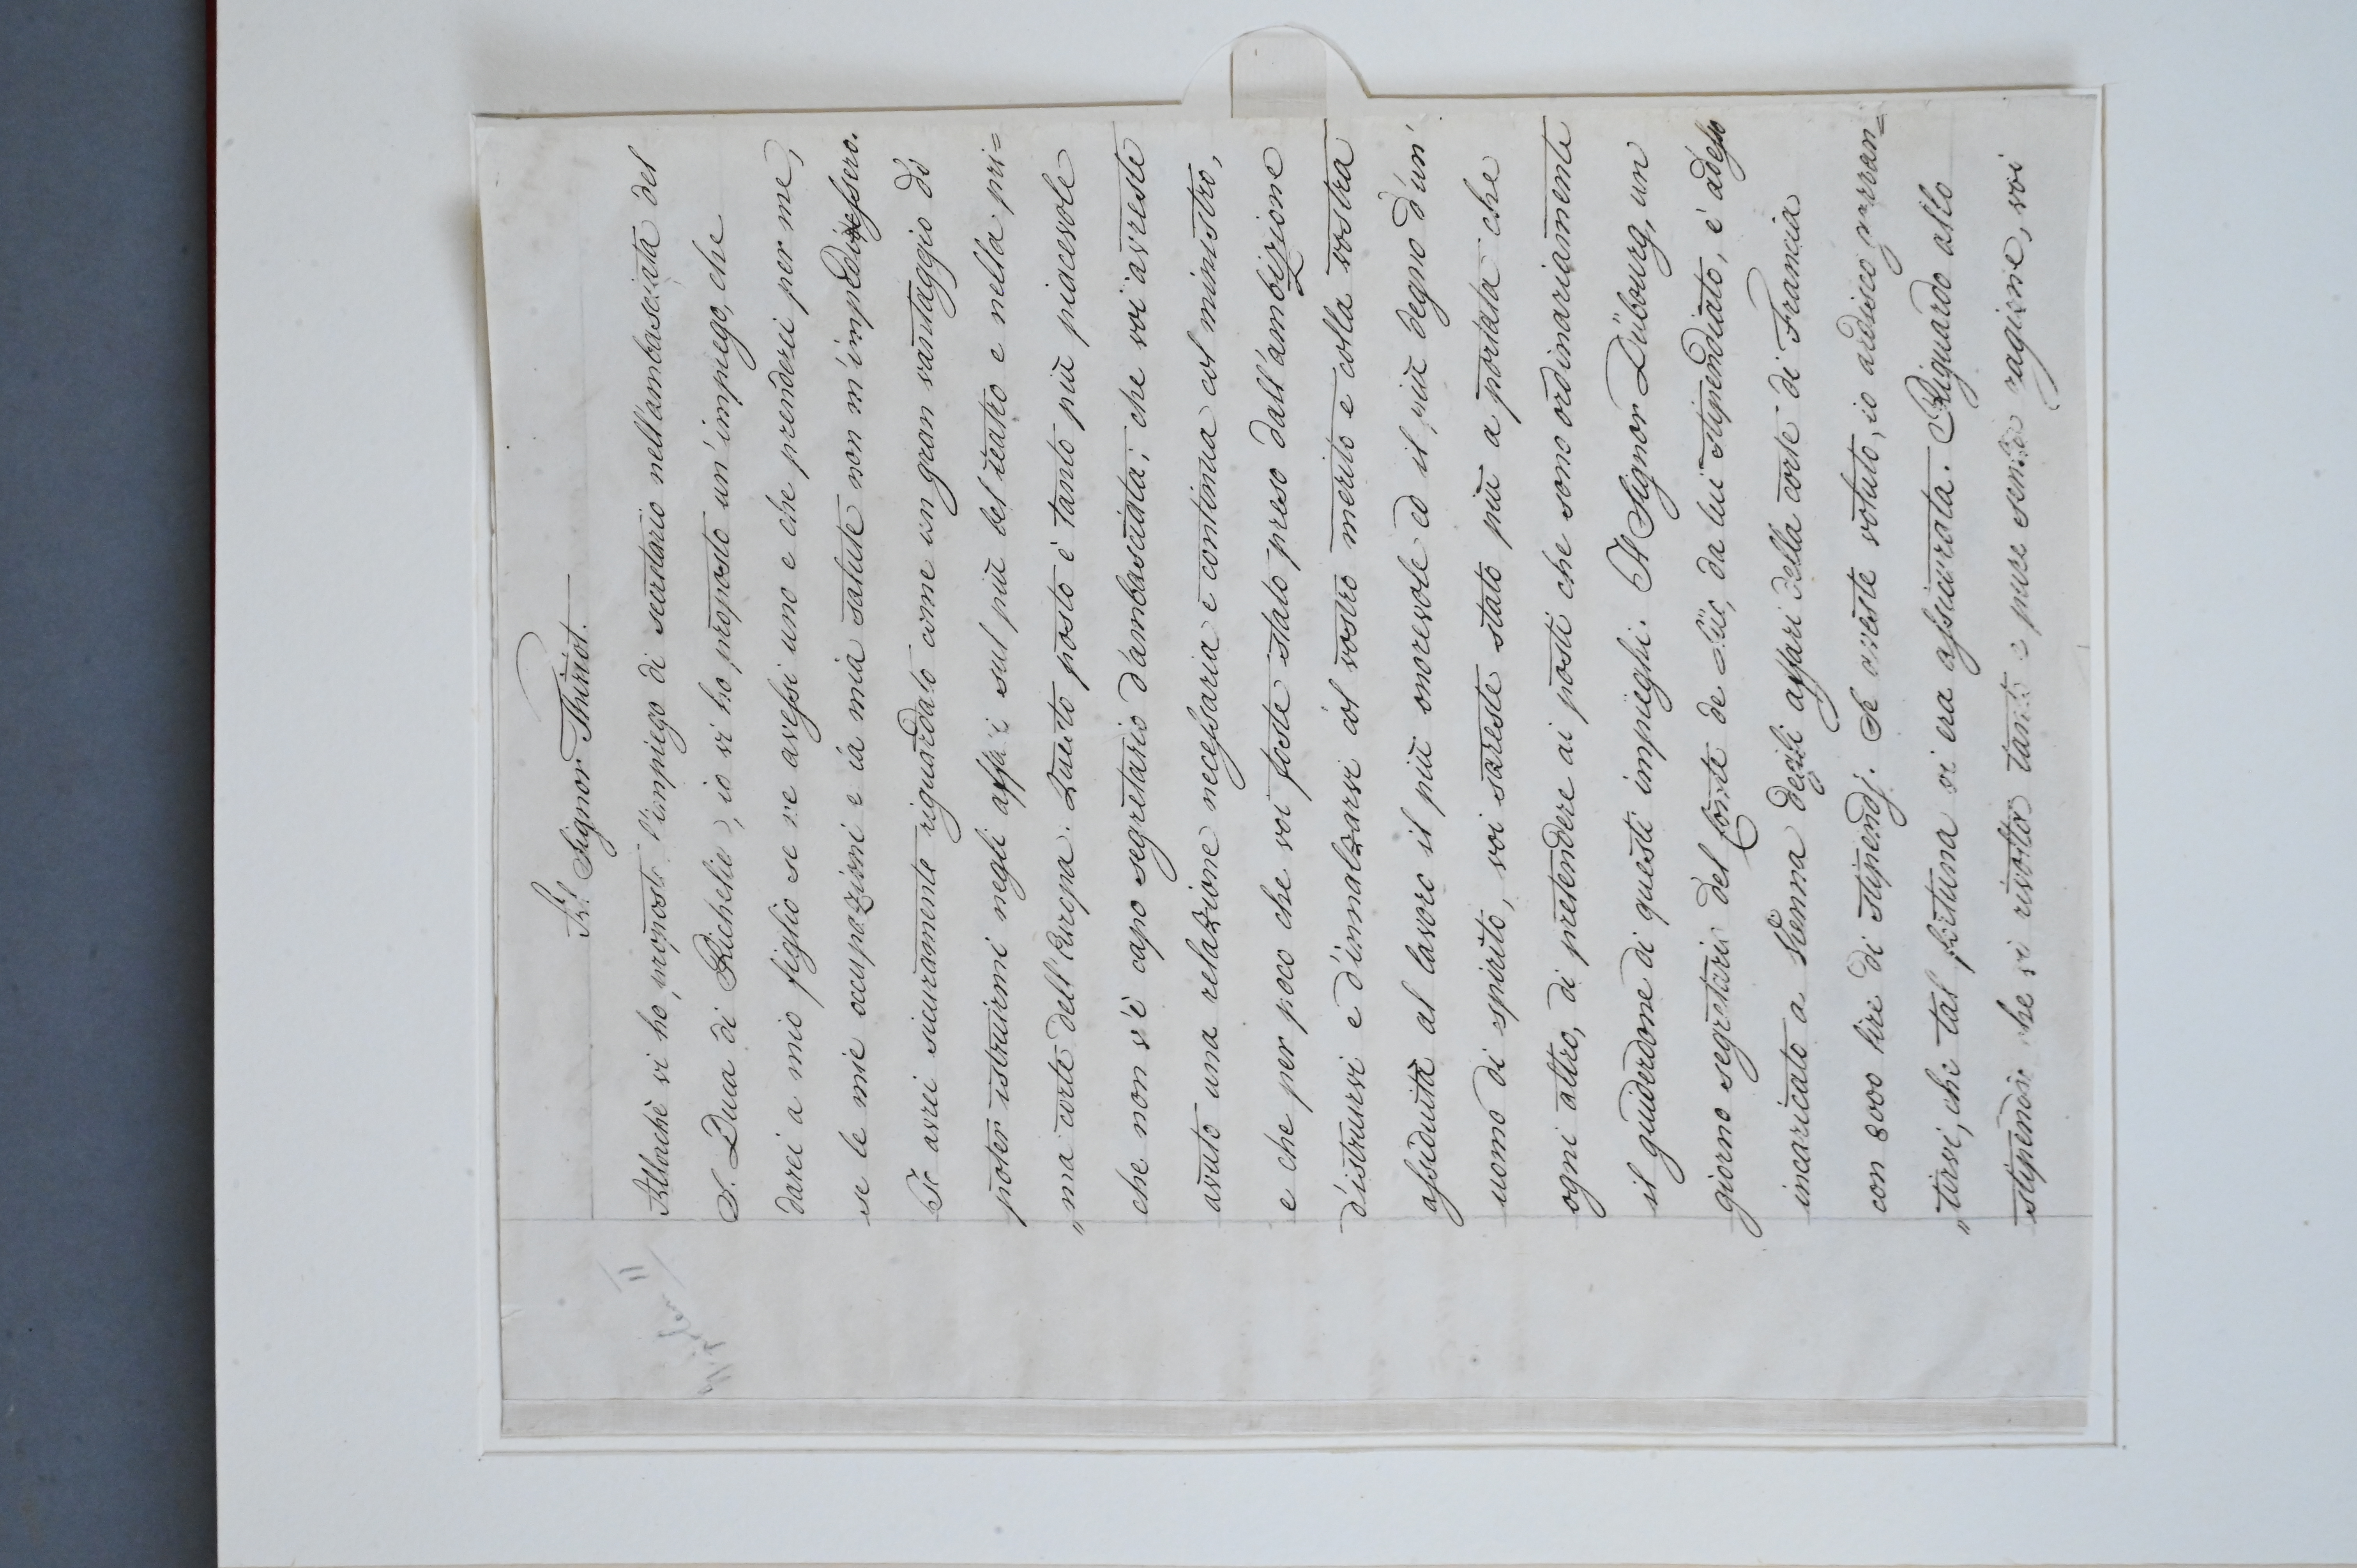 Al Signor Thiriot.
Allorchè vi ho proposto l'impiego di secretario nell'ambasciata del
S. Duca di Richelieu, io vi ho proposto un'impiego, che
darei a mio figlio se ne avessi uno e che prenderei per me,
se le mie occupazioni e la mia salute non m'impedissero.
Io avrei sicuramente riguardato come un gran vantaggio di
poter istruirmi negli affari sul più bel teatro e nella pri=
„ma corte dell'Europa. Questo posto è tanto più piacevole
che non v'è capo segretario d'ambasciata; che voi avreste
avuto una relazione necessaria e continua col ministro,
e che per poco che voi foste stato preso dall'ambizione
d'istruirvi e d'innalzarvi col vostro merito e colla vostra
assiduità al lavoro il più onorevole ed il più degno d'un'
uomo di spirito, voi sareste stato più a portata che
ogni altro, di pretendere ai posti che sono ordinariamente
il guiderdone di questi impieghi. Il Signor Dübourg, un
giorno segretario del Conte de Lüc, da lui stipendiato, è adesso
incaricato a Vienna degli affari della corte di Francia
con 8000 lire di stipendj. Se aveste voluto, io ardisco garan=
„tirvi, che tal fortuna vi era assicurata. Riguardo allo
stipendio che vi rivolta tanto e pure senza ragione, voi